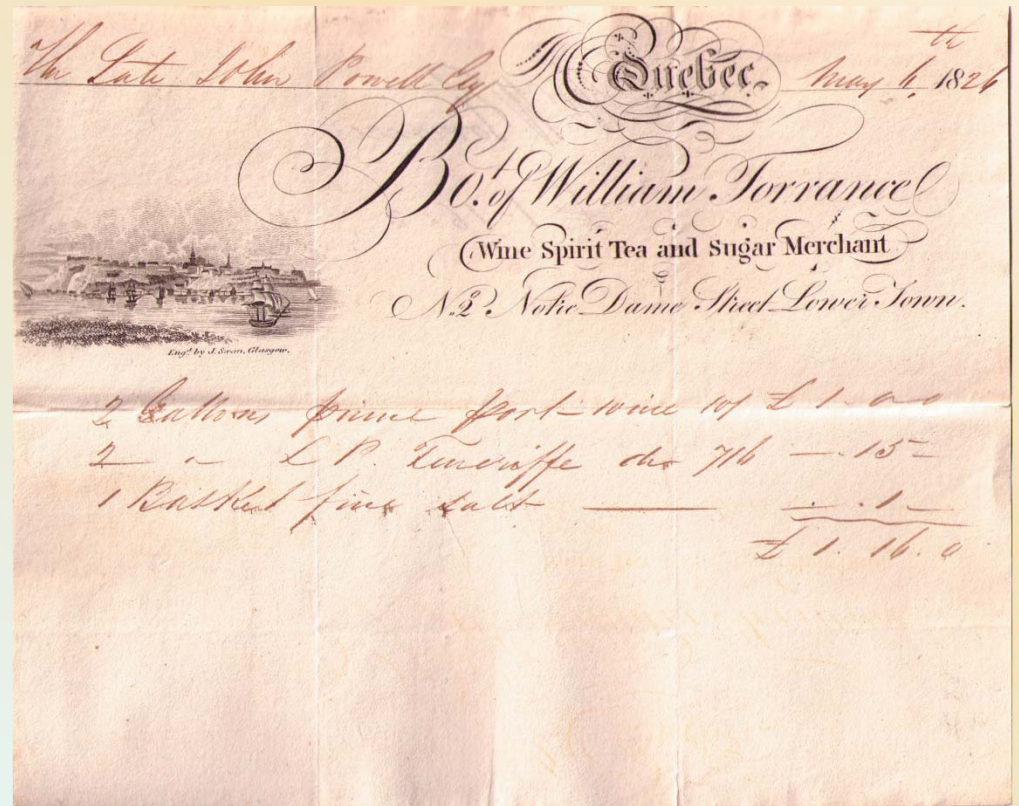 The Late John Powell Esq Quebec, May 6th, 1826
Bot. of William Torrance
Wine Spirit Tea and Sugar Merchant
No. 2 Notre Dame Street Lower Town.
Engd. by J. Swan, Glasgow.
2 Gallons prime port wine 10/ £ 1. 0 0
2 " L P. Teneriffe do 7/6 — . 15 -
1 Basket fine salt —— . . 1 -
£ 1. 16. 0